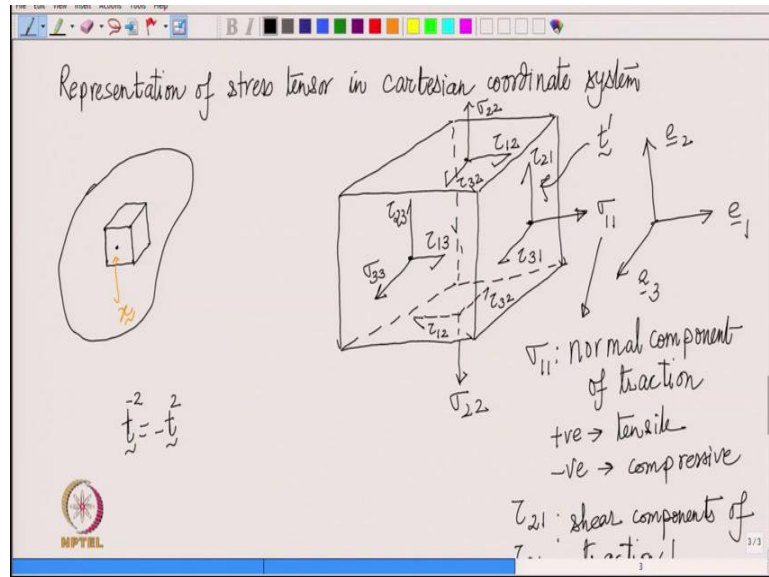 File Edit View Insert Actions Tools Help
B I
Representation of stress tensor in cartesian coordinate system
σ22
τ12
τ32
τ21
t1
e2
σ11
e1
τ31
e3
τ23
τ13
σ33
x
τ32
τ12
σ22
t-2 = -t2
σ11: normal component
of traction
+ve → tensile
-ve → compressive
τ21: shear components of
traction
NPTEL
3/3
3